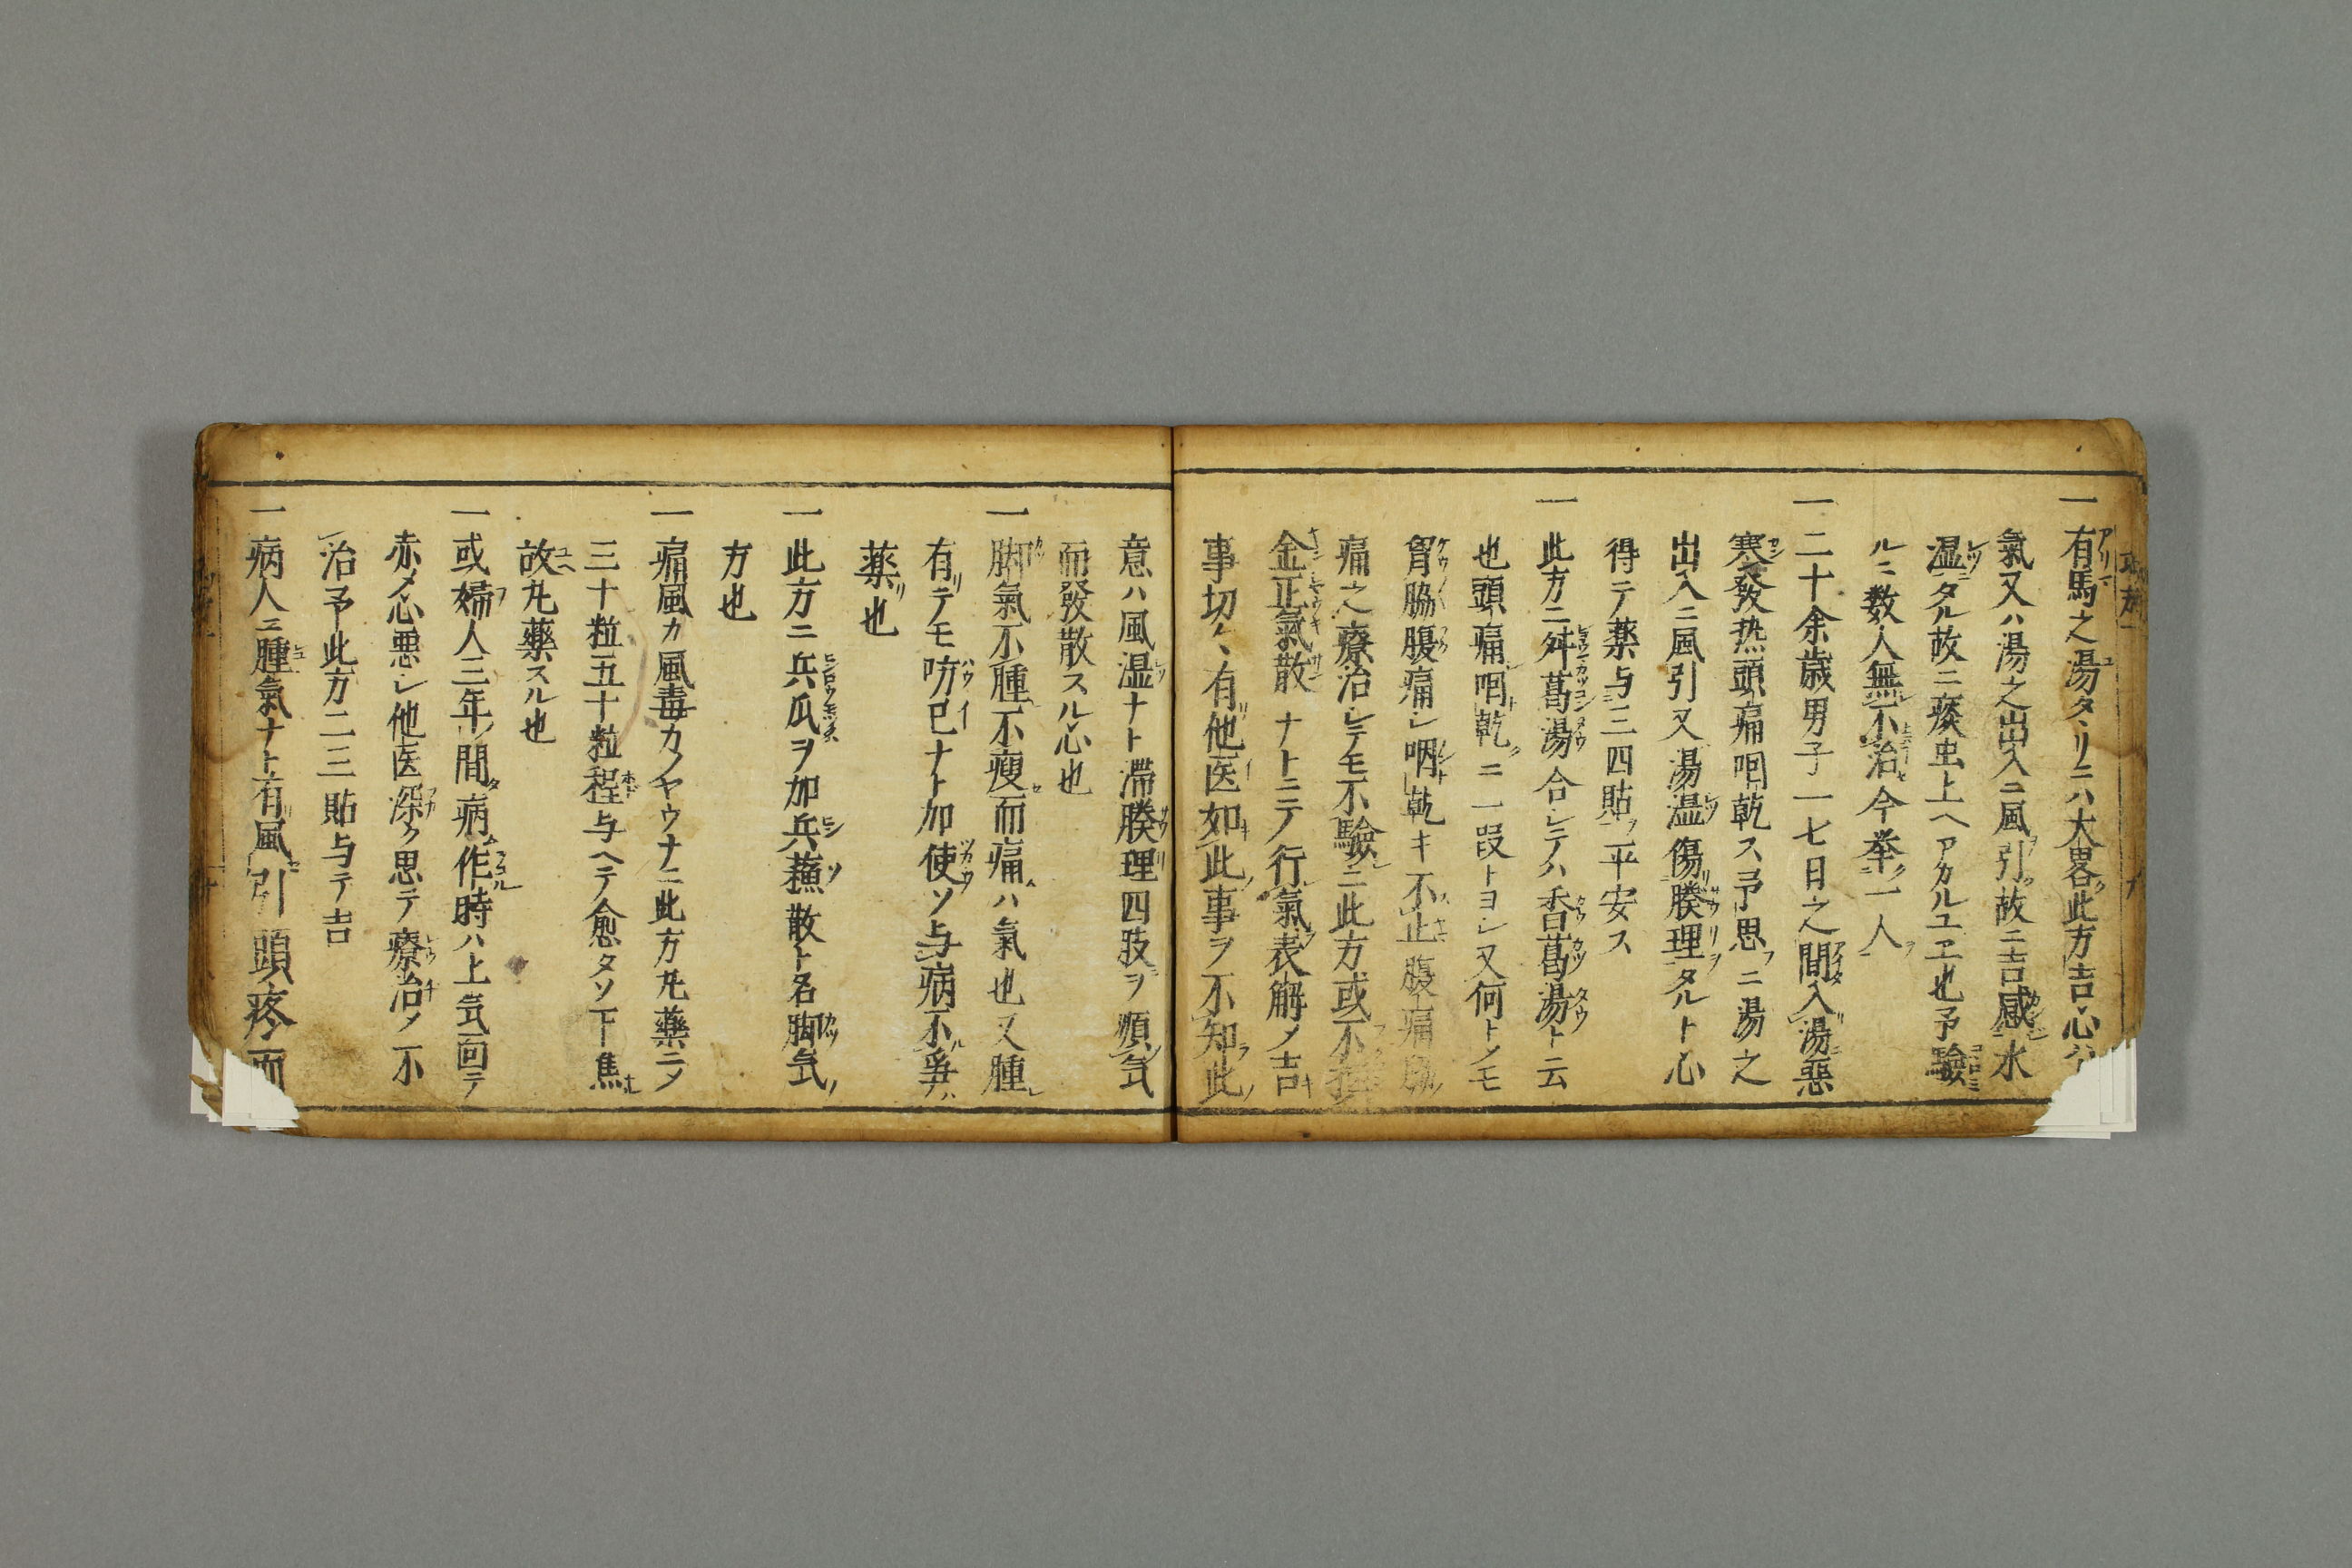 一有馬之湯タヽリニハ大畧此方吉心ハ
氣又ハ湯之出入ニ風引故ニ吉感水
湿タル故ニ痰虫上ヘアカルユエ也予驗
ルニ数人無不治今挙一人
一二十余歳男子一七日之間入湯悪
寒發热頭痛咽乾ス予思ニ湯之
出入ニ風引又湯湿傷腠理タルト心
得テ薬与三四貼平安ス
一此方ニ舛葛湯合シテハ香葛湯ト云
也頭痛咽乾ニ一段トヨシ又何トメモ
胷脇腹痛シ咽乾キ不止腹痛脇
痛之療治シテモ不驗ニ此方或不
金正氣散ナトニテ行氣表解メ吉
事切々有他医如此事ヲ不知此
意ハ風湿ナト滞腠理四肢ヲ順気
而發散スル心也
一脚氣不腫不瘦而痛ハ氣也又腫
有テモ防已ナト加使ソ与病不爭
薬也
一此方ニ兵瓜ヲ加兵蘓散ト名脚気
方也
一痛風カ風毒カノヤウナニ此方丸藥ニメ
三十粒五十粒程与ヘテ愈タソ下焦
故丸藥スル也
一或婦人三年間病作時ハ上気面テ
赤メ心悪シ他医深ク思テ療治メ不
治予此方二三貼与テ吉
一病人ニ腫氣ナト有風引頭疼而